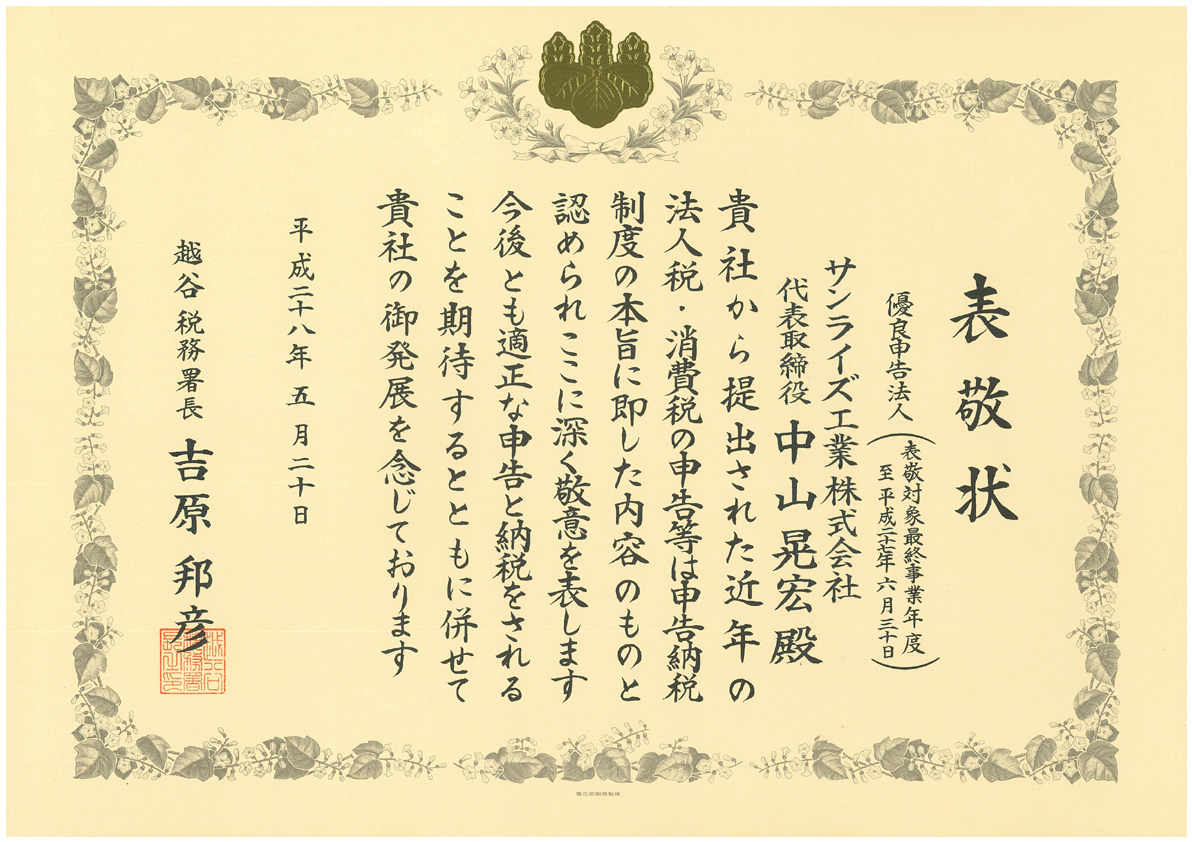 表敬状
優良申告法人(表敬対象最終事業年度
至 平成二十七年六月三十日)
サンライズ工業株式会社
代表取締役 中山晃宏殿
貴社から提出された近年の
法人税・消費税の申告等は申告納税
制度の本旨に即した内容のものと
認められここに深く敬意を表します
今後とも適正な申告と納税をされる
ことを期待するとともに併せて
貴社の御発展を念じております
平成二十八年五月二十日
越谷税務署長 吉原邦彦